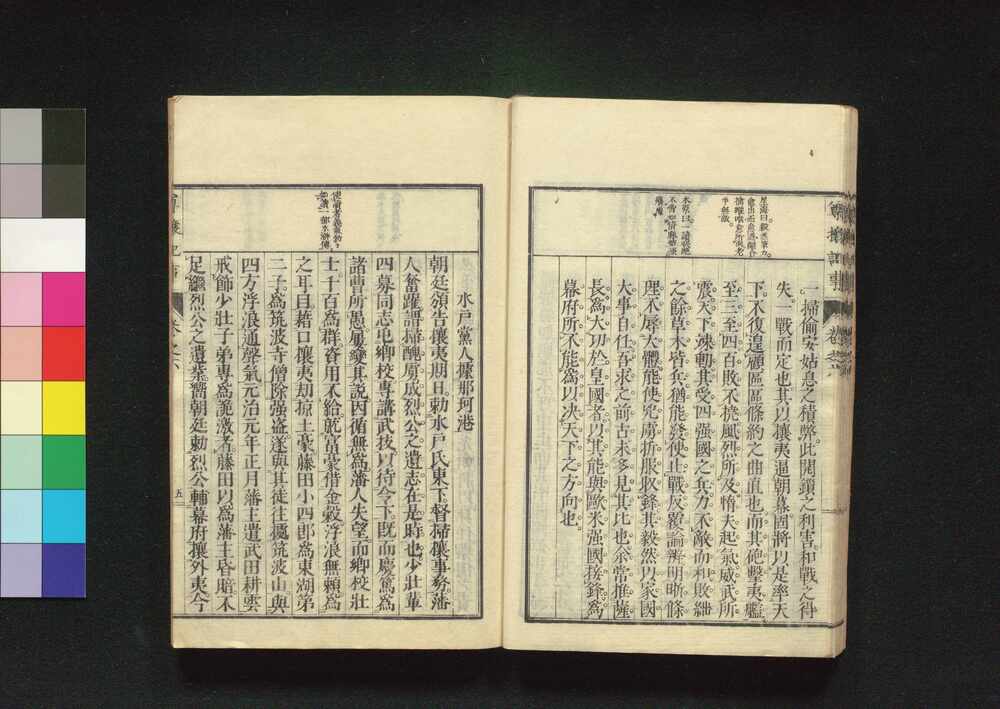 一掃偷安姑息之積弊。此開鎖之利害。和戰之得
失。一戰而定也。其以攘夷逼朝幕國將以是率天
下。不復遑顧區區條約之曲直也。而其砲擊夷艦。
至三至四。百敗不撓。風烈所及。惰夫起氣。威武所
震。天下凍朝。其受四强國之兵。力不敵而和。敗衄
之餘。草木皆兵。猶能發使止戰。反覆論辨。明晰條
理。不辱大體。能使兇虜折服收鋒。其毅然以家國
大事自任。吾求之前古。未多見其比也。余常推薩
長爲大功於皇國者。以其能與歐米强國接鋒。爲
幕府所不能爲。以决天下之方向也
水戶黨人據那珂港
朝廷頒告攘夷期日。勅水戶氏東下。督掃攘事務。藩
人奮躍謂掃醜虜。成烈公之遺志。在是時也。少壯輩
四募同志。屯鄉校。專講武技。以待令下。既而慶篤爲
諸曹所愚。屢變其說。因循無爲。藩人失望。而鄉校壯
士。千百爲群。資用不給。就富豪借金穀。浮浪無賴。爲
之耳目。藉口攘夷。劫掠土豪。藤田小四郎爲東湖弟
二子。爲筑波寺僧除强盜。遂與其徒往據筑波山。與
四方浮浪通聲氣。元治元年正月。藩主遣武田耕雲
戒飭少壯子弟專爲詭激者。藤田以爲藩主昏暗。不
足繼烈公之遺業。嚮朝廷勅烈公輔幕府攘外夷。今